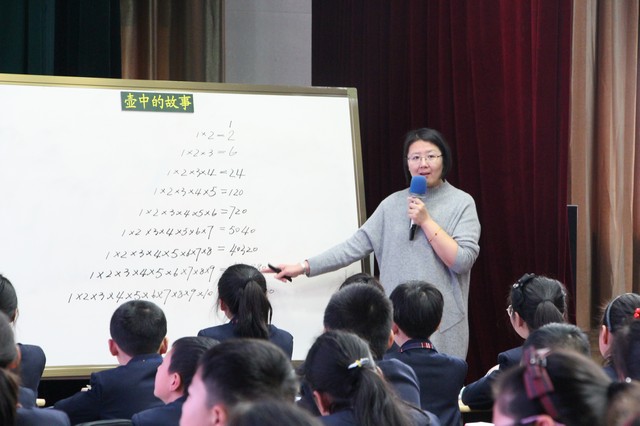 壶中的故事
1
1×2=2
1×2×3=6
1×2×3×4=24
1×2×3×4×5=120
1×2×3×4×5×6=720
1×2×3×4×5×6×7=5040
1×2×3×4×5×6×7×8=40320
1×2×3×4×5×6×7×8×9=
1×2×3×4×5×6×7×8×9×10